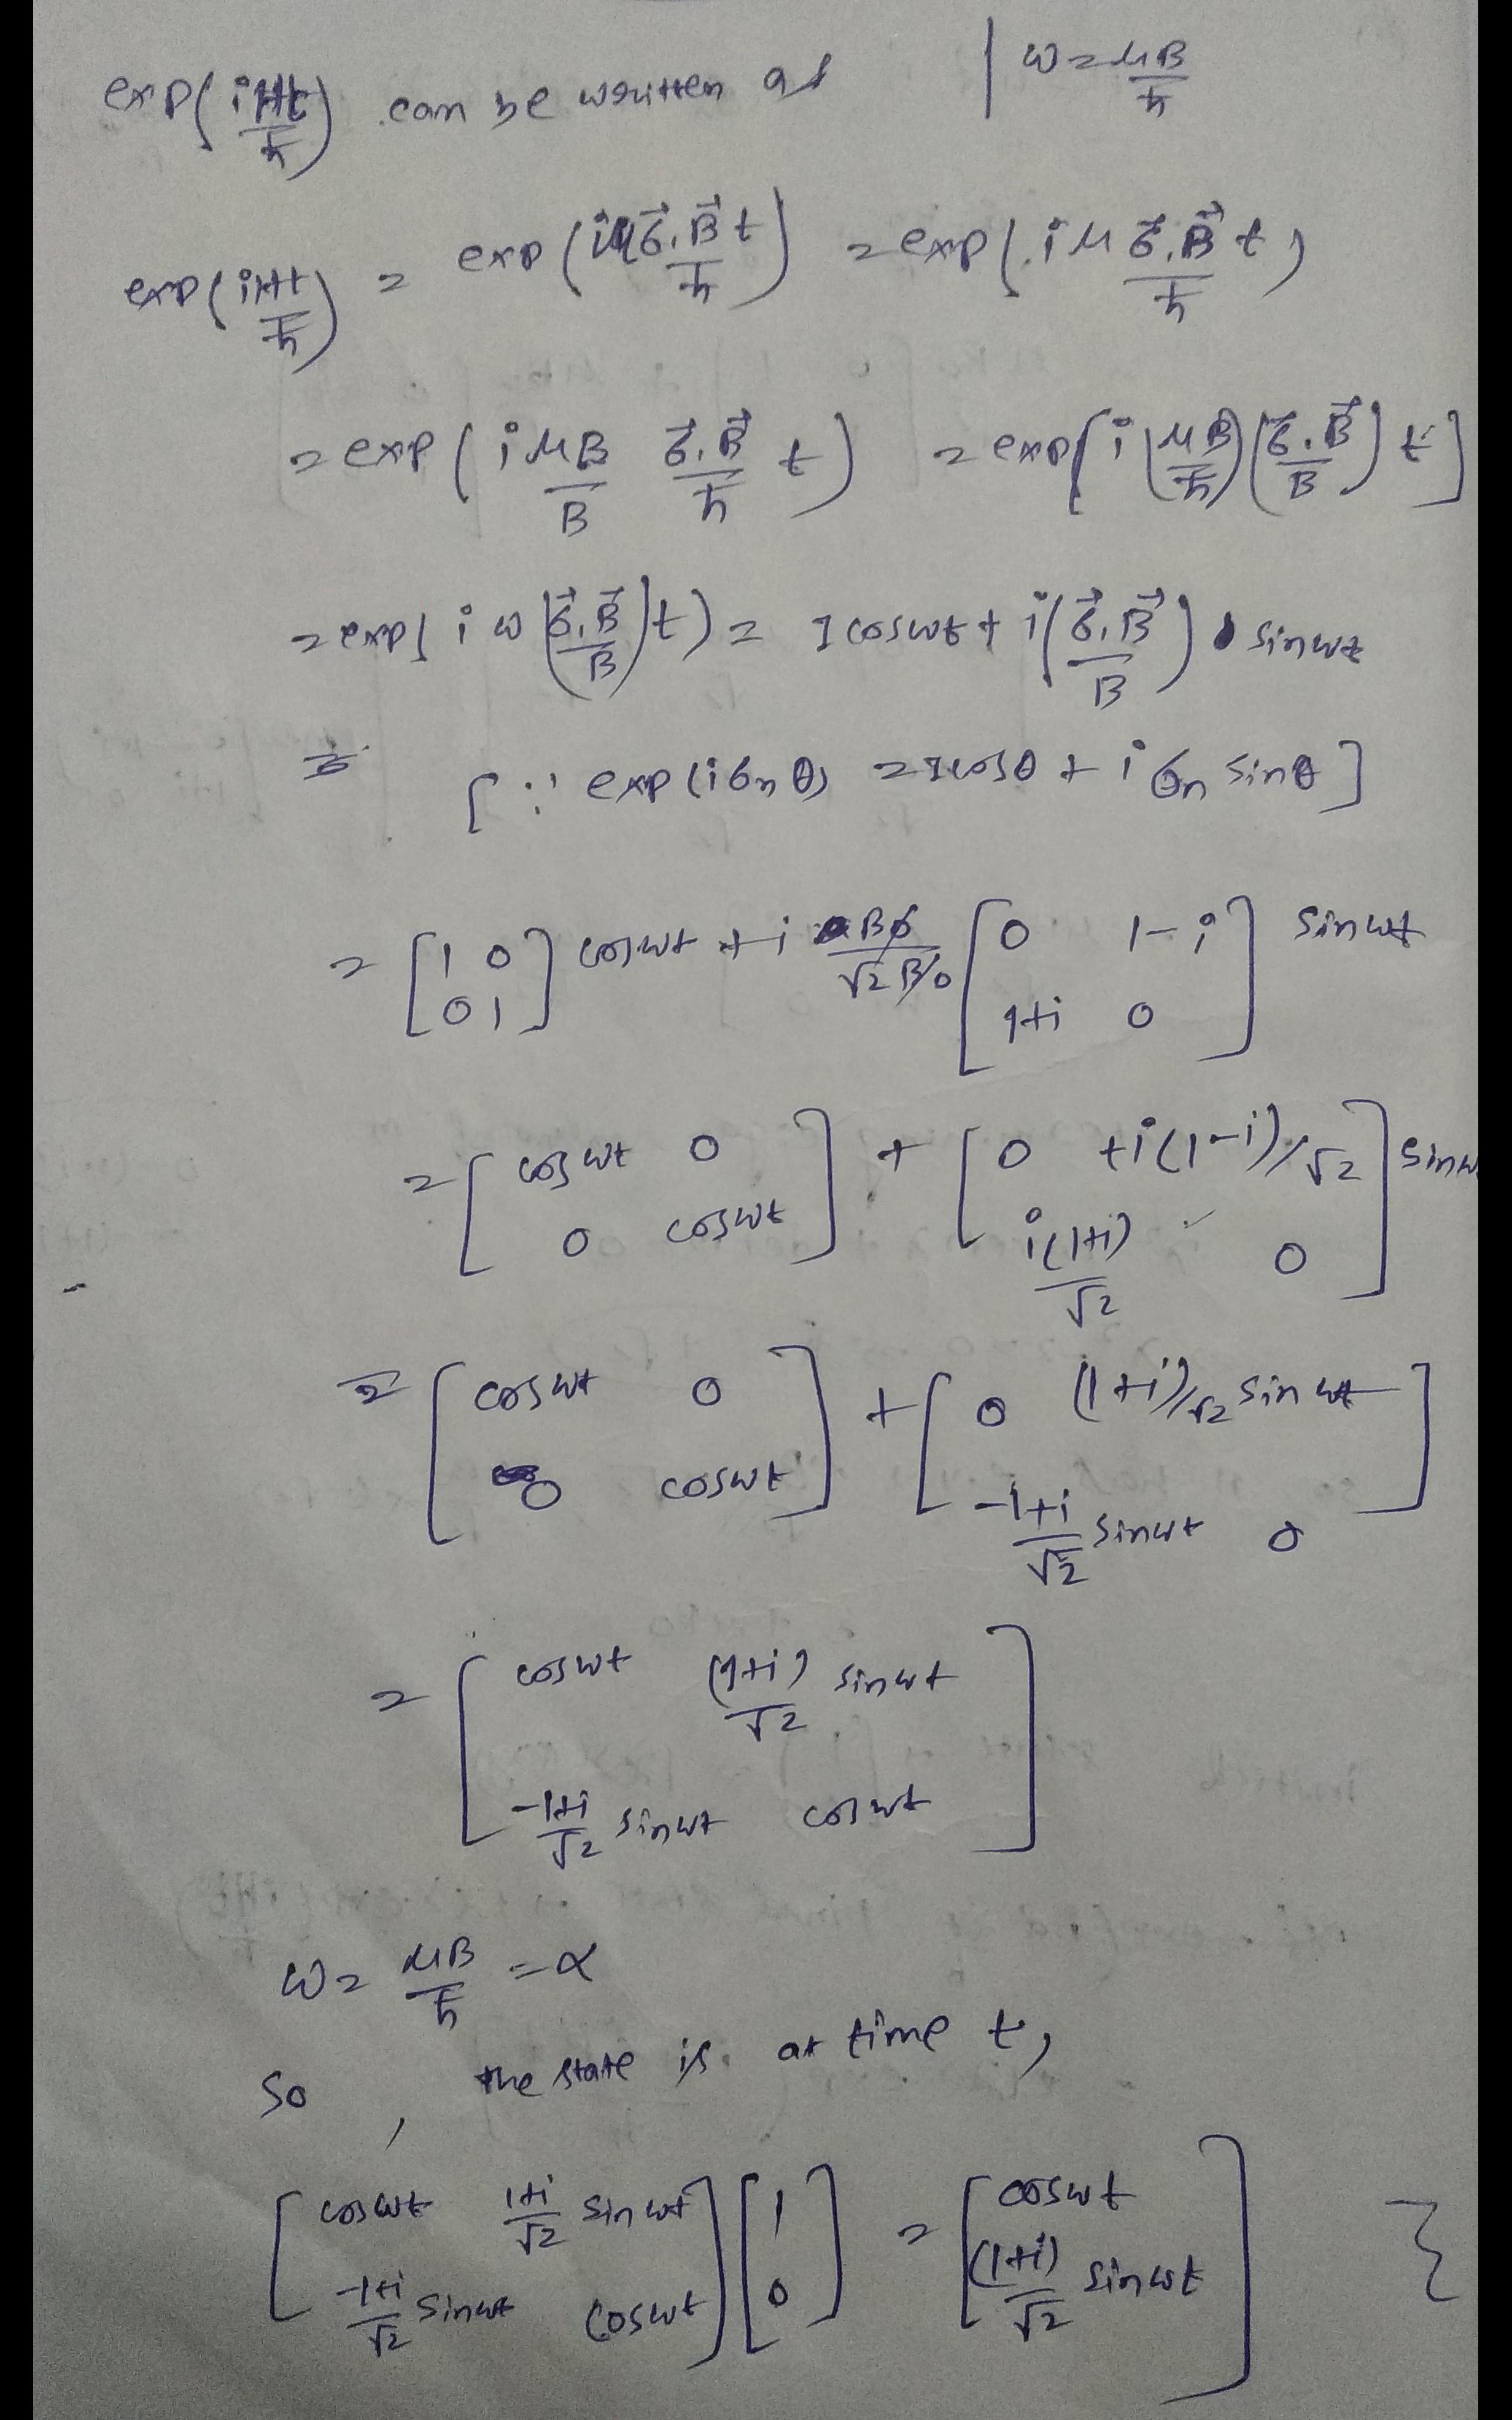 exp(iHt/ħ) can be written as | ω = μB/ħ
exp(iHt/ħ) = exp(iμσ⃗.B⃗t/ħ) = exp(iμσ⃗.B⃗/ħ t)
= exp(iμB/B σ⃗.B⃗/ħ t) = exp[i(μB/ħ)(σ⃗.B⃗/B)t]
= exp(iω(σ⃗.B⃗/B)t) = I cosωt + i(σ⃗.B⃗/B) sinωt
[∵ exp(iσₙθ) = I cosθ + iσₙ sinθ]
= [1 0; 0 1] cosωt + i B₀/√2 B₀ [0 1-i; 1+i 0] sinωt
= [cosωt 0; 0 cosωt] + [0 +i(1-i)/√2; i(1+i)/√2 0] sinω
= [cosωt 0; 0 cosωt] + [0 (1+i)/√2 sinωt; -1+i/√2 sinωt 0]
= [cosωt (1+i)/√2 sinωt; -1+i/√2 sinωt cosωt]
ω = μB/ħ = α
So, the state is at time t,
[cosωt 1+i/√2 sinωt; -1+i/√2 sinωt cosωt] [1; 0] = [cosωt; (1+i)/√2 sinωt] }